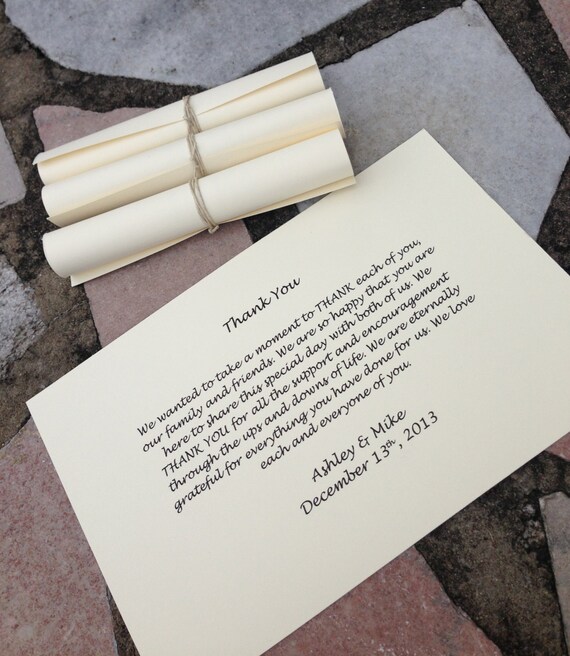 Thank You
We wanted to take a moment to THANK each of you,
our family and friends. We are so happy that you are
here to share this special day with both of us. We
THANK YOU for all the support and encouragement
through the ups and downs of life. We are eternally
grateful for everything you have done for us. We love
each and everyone of you.
Ashley & Mike
December 13th, 2013